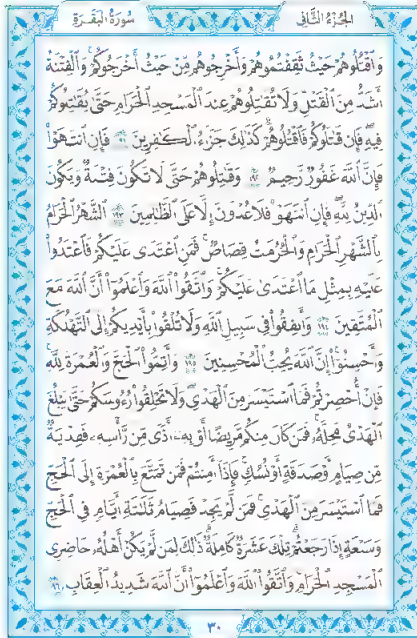 الجزء الثاني
سورة البقرة
وَٱقْتُلُوهُمْ حَيْثُ ثَقِفْتُمُوهُمْ وَأَخْرِجُوهُم مِّنْ حَيْثُ أَخْرَجُوكُمْ وَٱلْفِتْنَةُ
أَشَدُّ مِنَ ٱلْقَتْلِ وَلَا تُقَٰتِلُوهُمْ عِندَ ٱلْمَسْجِدِ ٱلْحَرَامِ حَتَّىٰ يُقَٰتِلُوكُمْ
فِيهِ فَإِن قَٰتَلُوكُمْ فَٱقْتُلُوهُمْ كَذَٰلِكَ جَزَآءُ ٱلْكَٰفِرِينَ ١٩١ فَإِنِ ٱنتَهَوْا۟
فَإِنَّ ٱللَّهَ غَفُورٌ رَّحِيمٌ ١٩٢ وَقَٰتِلُوهُمْ حَتَّىٰ لَا تَكُونَ فِتْنَةٌ وَيَكُونَ
ٱلدِّينُ لِلَّهِ فَإِنِ ٱنتَهَوْا۟ فَلَا عُدْوَٰنَ إِلَّا عَلَى ٱلظَّٰلِمِينَ ١٩٣ ٱلشَّهْرُ ٱلْحَرَامُ
بِٱلشَّهْرِ ٱلْحَرَامِ وَٱلْحُرُمَٰتُ قِصَاصٌ فَمَنِ ٱعْتَدَىٰ عَلَيْكُمْ فَٱعْتَدُوا۟
عَلَيْهِ بِمِثْلِ مَا ٱعْتَدَىٰ عَلَيْكُمْ وَٱتَّقُوا۟ ٱللَّهَ وَٱعْلَمُوٓا۟ أَنَّ ٱللَّهَ مَعَ
ٱلْمُتَّقِينَ ١٩٤ وَأَنفِقُوا۟ فِى سَبِيلِ ٱللَّهِ وَلَا تُلْقُوا۟ بِأَيْدِيكُمْ إِلَى ٱلتَّهْلُكَةِ
وَأَحْسِنُوٓا۟ إِنَّ ٱللَّهَ يُحِبُّ ٱلْمُحْسِنِينَ ١٩٥ وَأَتِمُّوا۟ ٱلْحَجَّ وَٱلْعُمْرَةَ لِلَّهِ
فَإِنْ أُحْصِرْتُمْ فَمَا ٱسْتَيْسَرَ مِنَ ٱلْهَدْىِ وَلَا تَحْلِقُوا۟ رُءُوسَكُمْ حَتَّىٰ يَبْلُغَ
ٱلْهَدْىُ مَحِلَّهُۥ فَمَن كَانَ مِنكُم مَّرِيضًا أَوْ بِهِۦٓ أَذًى مِّن رَّأْسِهِۦ فَفِدْيَةٌ
مِّن صِيَامٍ أَوْ صَدَقَةٍ أَوْ نُسُكٍ فَإِذَآ أَمِنتُمْ فَمَن تَمَتَّعَ بِٱلْعُمْرَةِ إِلَى ٱلْحَجِّ
فَمَا ٱسْتَيْسَرَ مِنَ ٱلْهَدْىِ فَمَن لَّمْ يَجِدْ فَصِيَامُ ثَلَٰثَةِ أَيَّامٍ فِى ٱلْحَجِّ
وَسَبْعَةٍ إِذَا رَجَعْتُمْ تِلْكَ عَشَرَةٌ كَامِلَةٌ ذَٰلِكَ لِمَن لَّمْ يَكُنْ أَهْلُهُۥ حَاضِرِى
ٱلْمَسْجِدِ ٱلْحَرَامِ وَٱتَّقُوا۟ ٱللَّهَ وَٱعْلَمُوٓا۟ أَنَّ ٱللَّهَ شَدِيدُ ٱلْعِقَابِ ١٩٦
٣٠